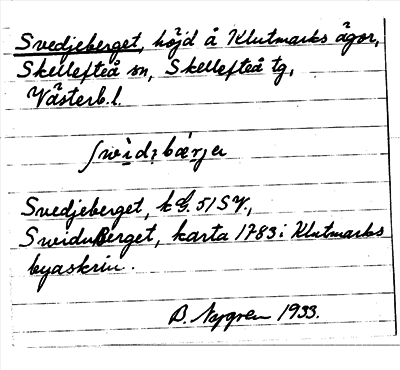 Svedjeberget, höjd å Klutmarks ägor,
Skellefteå sn, Skellefteå tg,
Västerb. l.
Svedjeberget, k G. 51 SV.,
Swiduberget, karta 1783 i Klutmarks
byaskrin.
B. Nygren 1933.